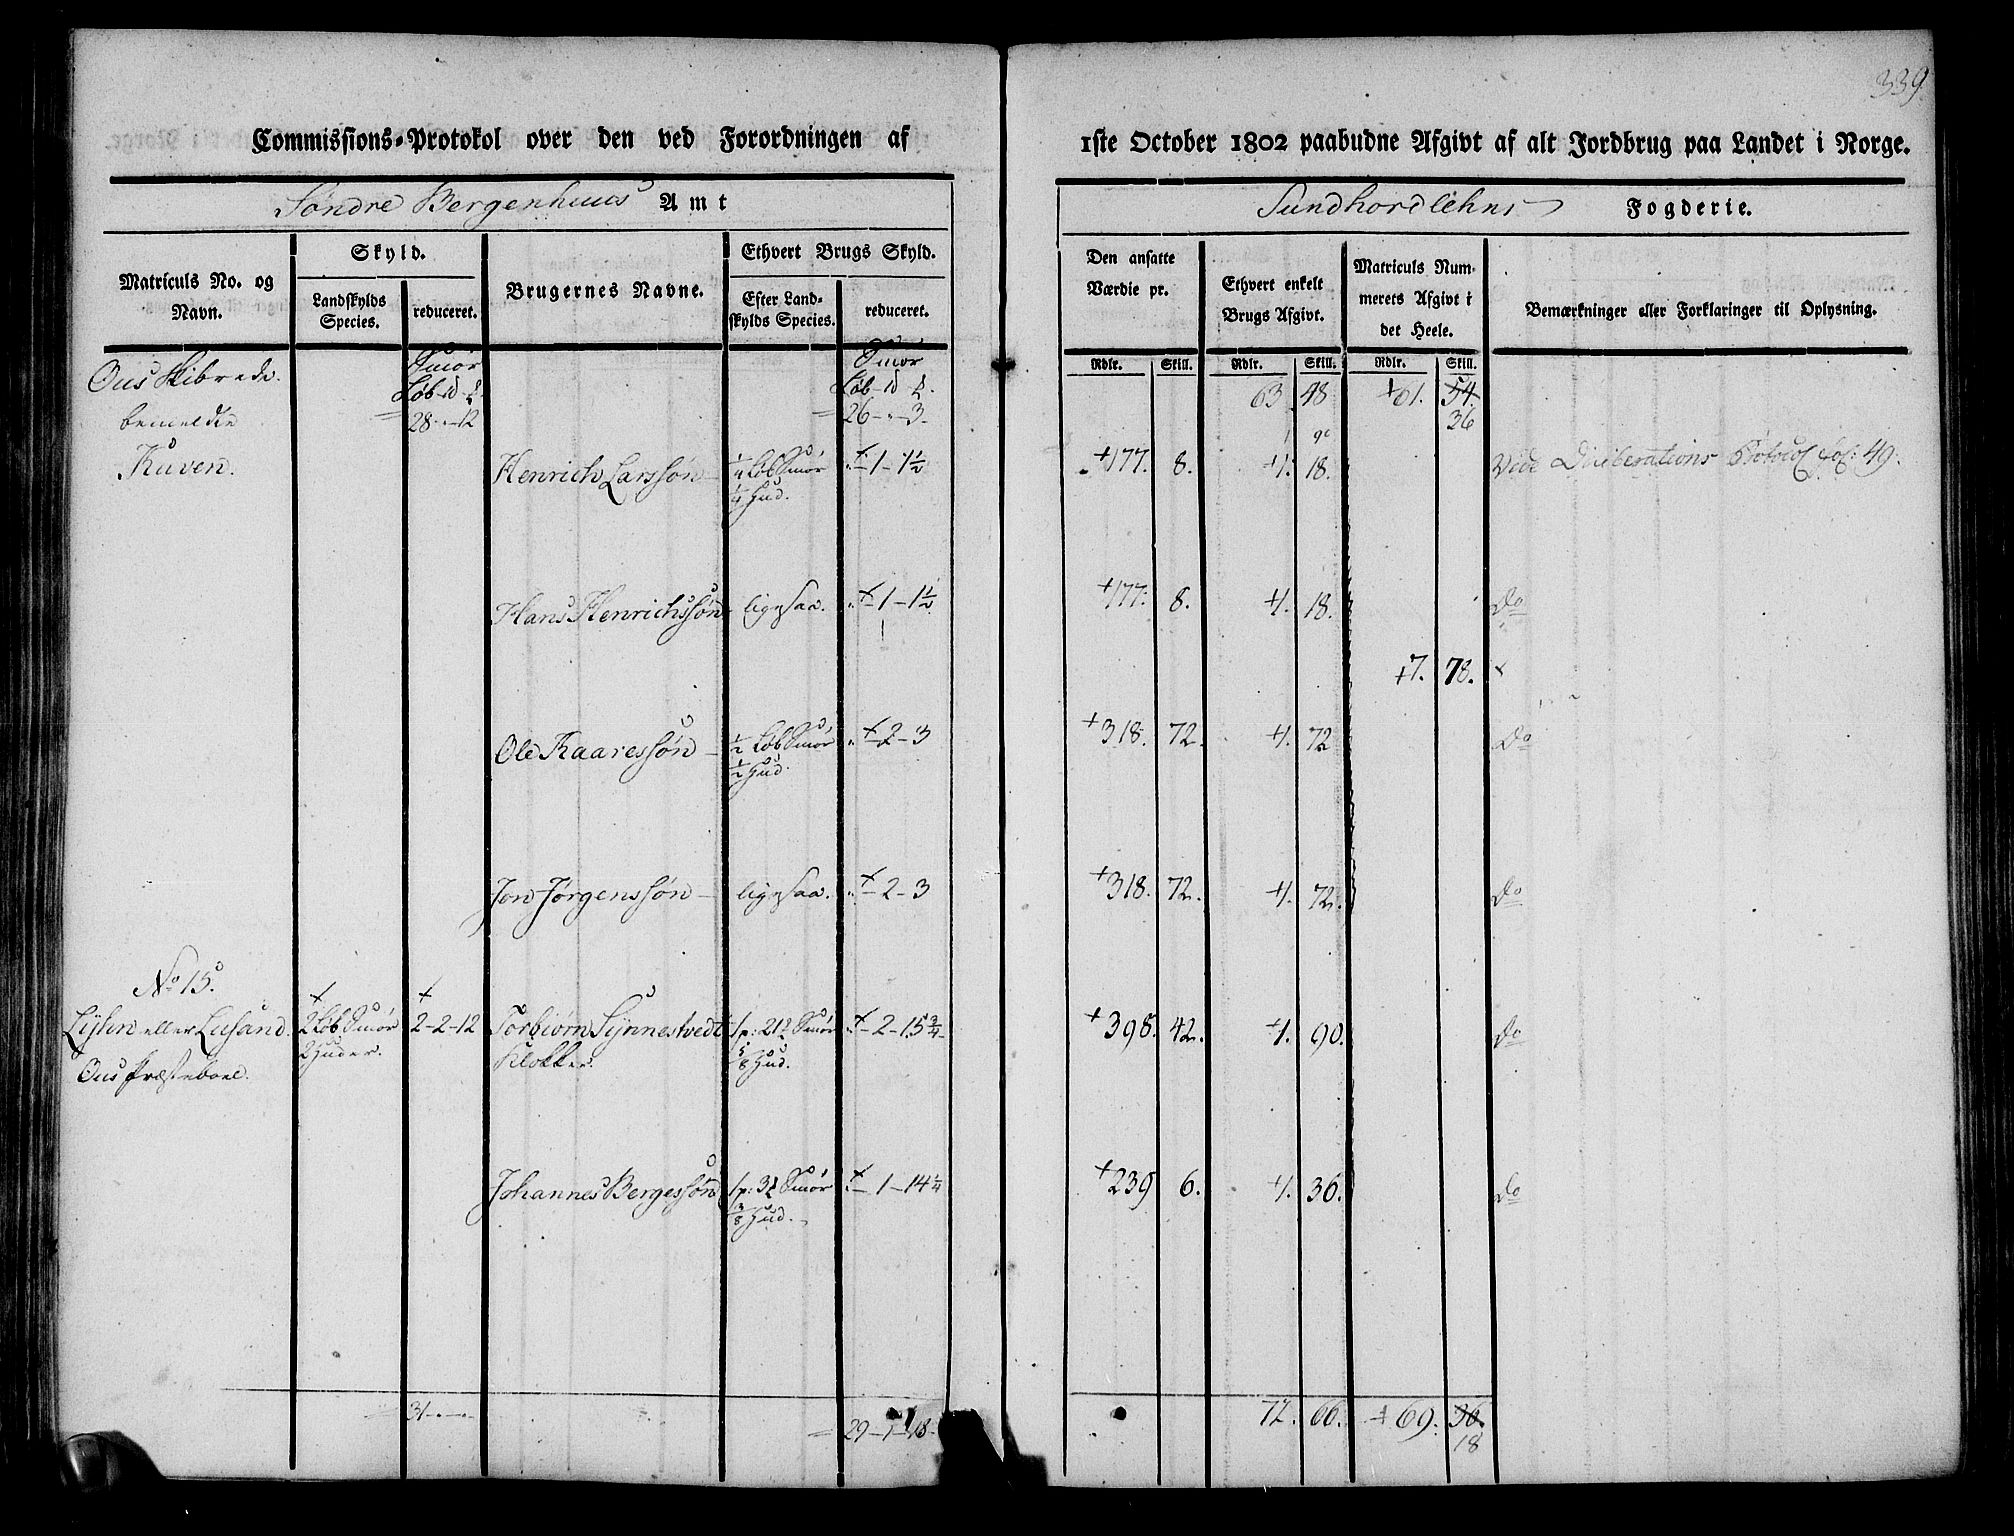 339
Commissions-Protokol over den ved Forordningen af 1ste October 1802 paabudne Afgivt af alt Jordbrug paa Landet i Norge.
Søndre Bergenhuus Amt
Sundhordlehns Fogderie.
Matriculs No. og Navn.
Skyld.
Landskylds Species.
reduceret.
Brugernes Navne.
Ethvert Brugs Skyld.
Efter Landskylds Species.
reduceret.
Den ansatte Værdie pr.
Rdlr. Skill.
Ethvert enkelt Brugs Afgivt.
Rdlr. Skill.
Matriculs Nummerets Afgivt i det Heele.
Rdlr. Skill.
Bemærkninger eller Forklaringer til Oplysning.
Ous Skibrede. Smør Smør
Løb Løb 63 48 +61. 54.
bemeldte 28-"-12 26-"-3- 36
Kuven. Henrich Larssøn 1/4 Løb Smør "-1-1 1/2 +177. 8. +1. 18. Vide Deliberations Protocol fol: 49.
1/4 Hud.
Hans Henrichssøn ligesaa. "-1-1 1/2 +177. 8. +1. 18. Do
+7. 78.
Ole Kaaressøn 1/2 Løb Smør "-2-3 +318. 72. +1. 72 Do
1/2 Hud.
Jon Jørgenssøn ligesaa. "-2-3 +318. 72. +1. 72. Do
No 15.
Lysen eller Lusand. 2 Løb Smør 2-2-12 Torbiørn Synnestvedt Smør "-2-15 3/4 +398. 42. +1. 90. Do
Ous Præsteboel. 2 Huder. Klokker. 5/8 Hud.
Johannes Bergessøn Smør "-1-14 1/4 +239 6. +1. 36. Do
3/8 Hud.
31-"-" 29-1-18- 72. 66. +69. 36.
18